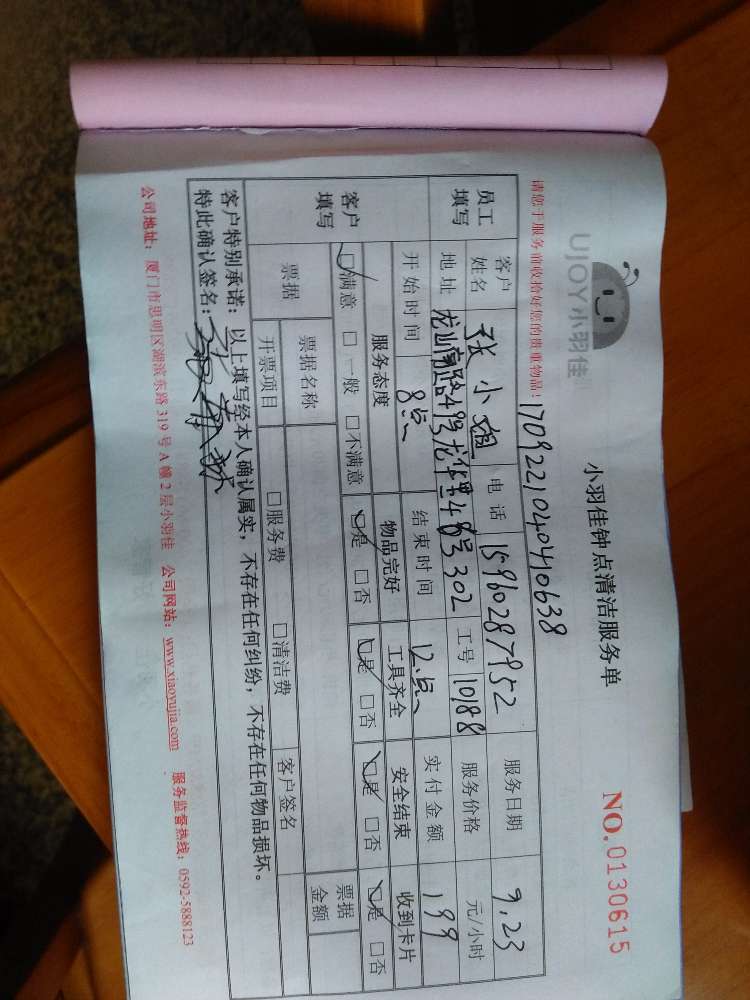 UJOY小羽佳
小羽佳钟点清洁服务单
NO.0130615
请您于服务前收拾好您的贵重物品！ 170922104040638
员工填写 客户姓名 张小姐 电话 15960287952 服务日期 9.23
地址 龙山南路4号龙华里48号302 工号 1088 服务价格 元/小时
开始时间 8点 结束时间 12点 实付金额 199
客户填写 服务态度 物品完好 工具齐全 安全结束 收到卡片
☑满意 □一般 □不满意 ☑是 □否 ☑是 □否 ☑是 □否 ☑是 □否
票据 票据名称 票据金额
开票项目 □服务费 □清洁费 客户签名
客户特别承诺：以上填写经本人确认属实，不存在任何纠纷，不存在任何物品损坏。
特此确认签名：
公司地址：厦门市思明区湖滨东路319号A幢2层小羽佳 公司网站：www.xiaoyujia.com 服务监督热线：0592-5888123